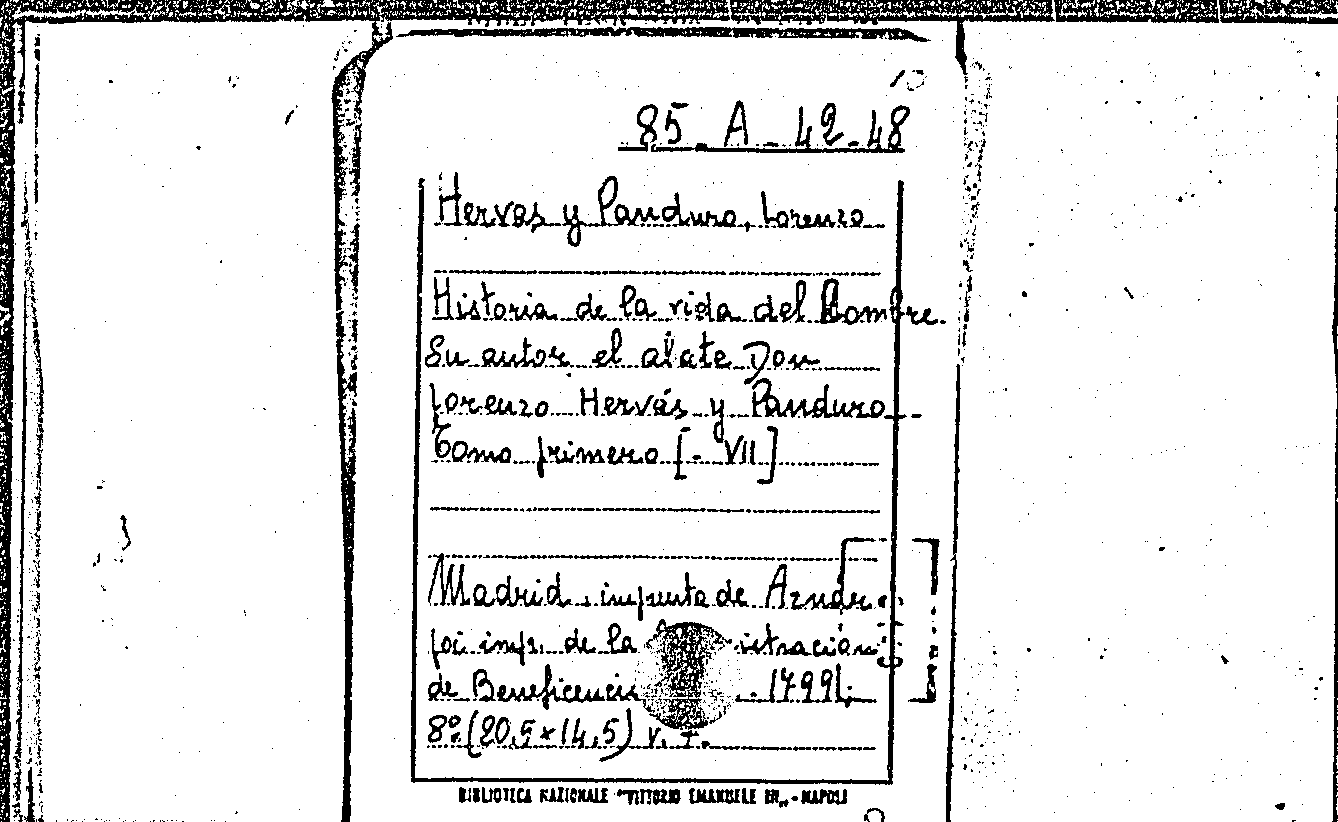 10
85 A 42-48
Hervas y Panduro, Lorenzo
Historia de la vida del Hombre.
Su autor el abate Don
Lorenzo Hervás y Panduro
Tomo primero [- VII]
Madrid, imprenta de Aznár
poi imp. de la
de Beneficencia 1799
8º (20,5 x 14,5) v. 7.
BIBLIOTECA NAZIONALE "VITTORIO EMANUELE III" - NAPOLI